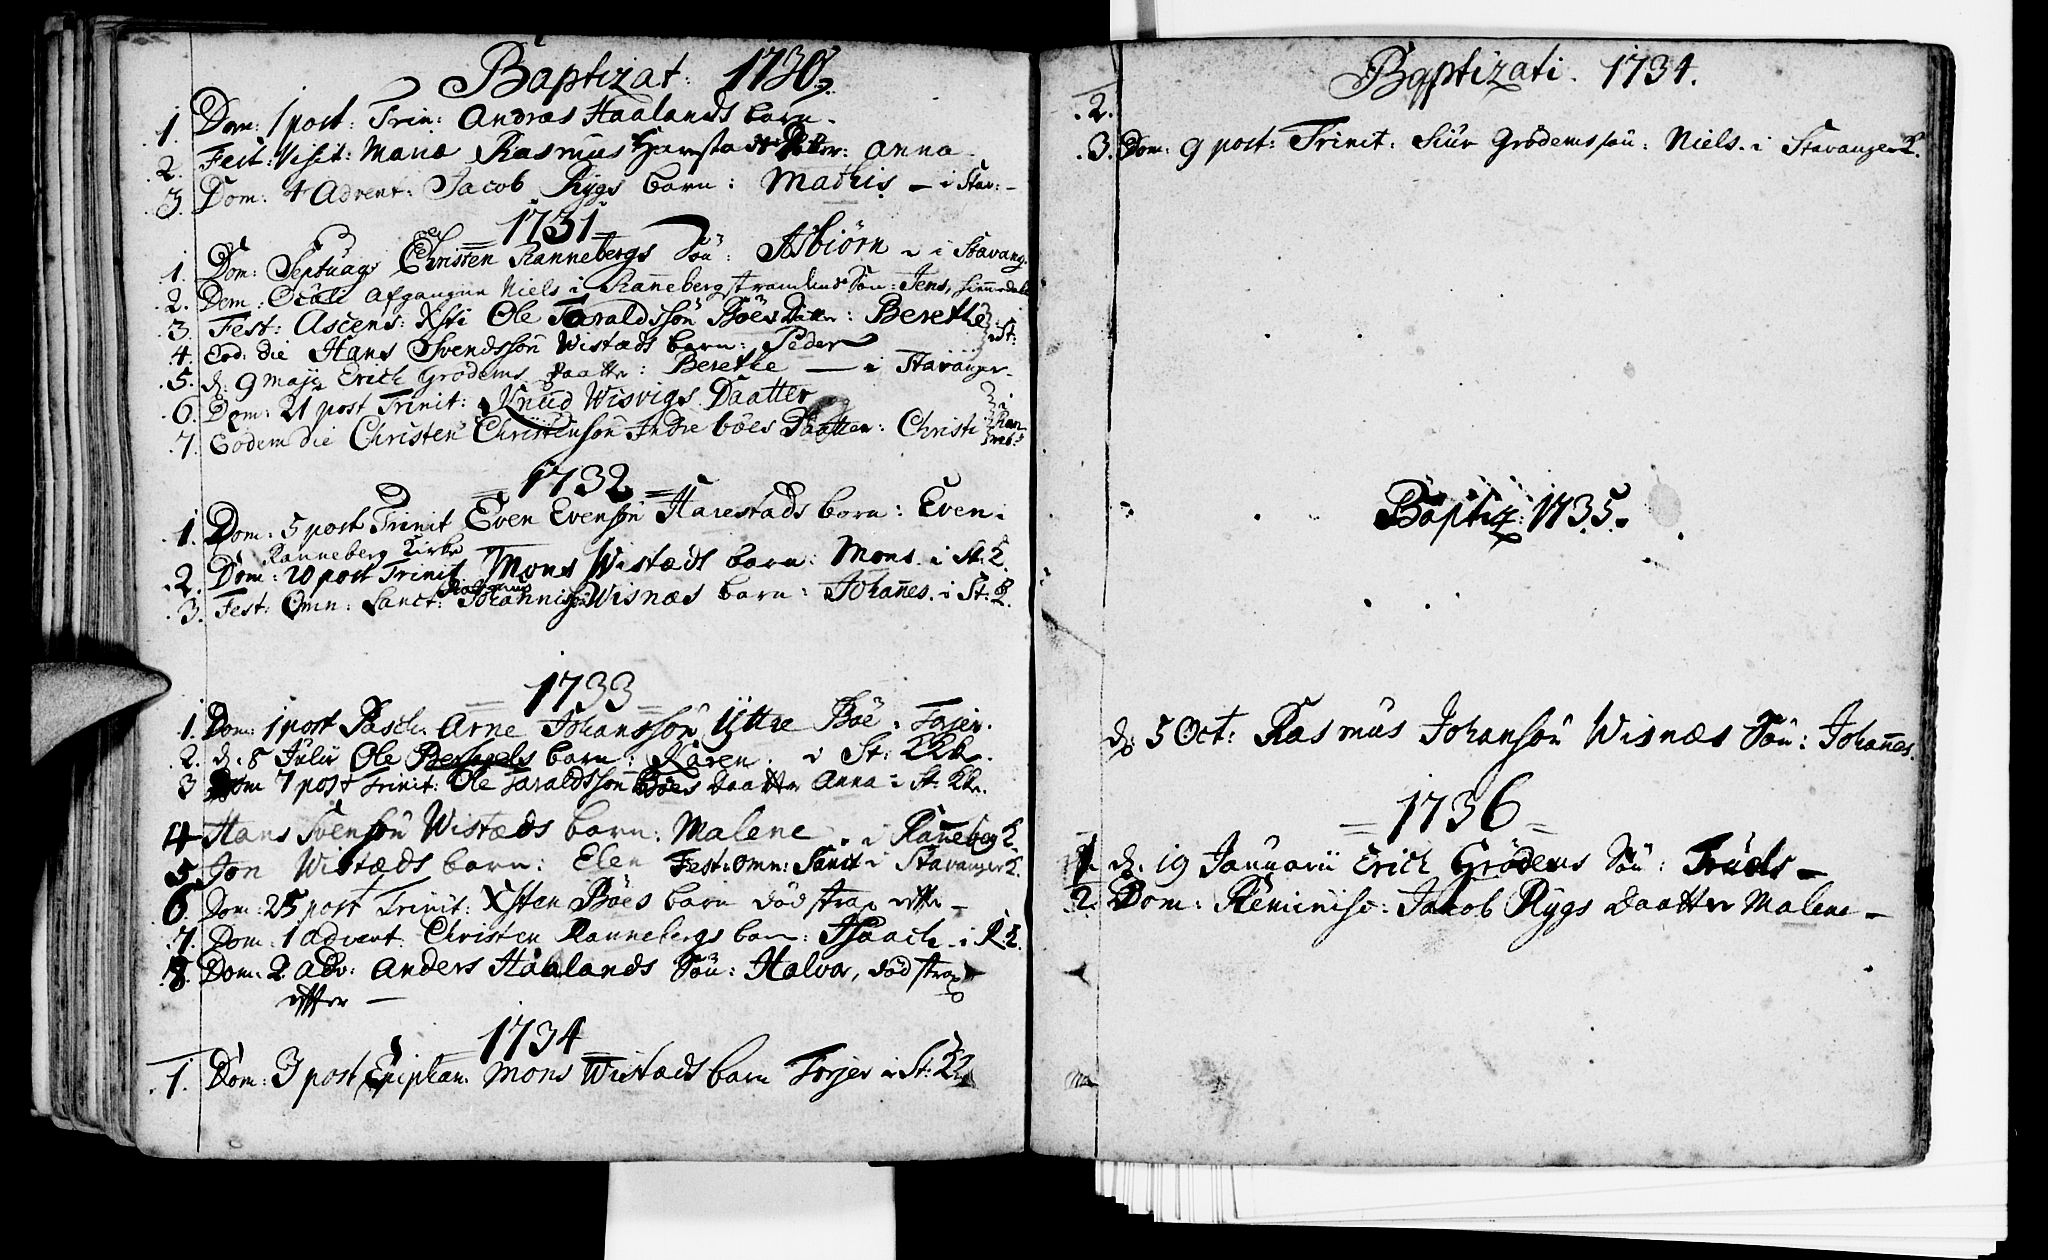 Baptizat: 1730.
1. Dom: 1 post: Trin: Andræs Haalands barn.
2. Fest: Visit: Mariæ Rasmus Harestads Datter: Anna
3. Dom: 4 Advent: Jacob Rygs barn: Mathis - i Stav: -
1731
1. Dom: Septuag: Christen Rannebergs Sön: Asbiörn i Stavang:
2. Dom: Oculi afgangne Niels i Ranneberg Sön: Jens,
3. Fest: Ascens: Xsti Ole Taraldssön Böes Datter: Berethe
i St:
4. Eod: die Hans Svendssön Wistæds barn: Peder
5. d: 9 Maji Erich Grödems Daatter: Berethe — i Stavanger.
6. Dom: 21 post Trinit: Knud Wisvigs Daatter
7. Eodem die Christen Christensön Indre böes Daatter: Christi
i Ran
neb:
1732
1. Dom: 5 post Trinit Even Evensön Harestads barn: Even i
Ranneberg Kirke
2. Dom: 20 post Trinit. Mons Wistæds barn: Mons. i St: K.
3. Fest: Omn: Sanct: Rasmus Wisnæs barn: Johannes. i St: K.
1733
1. Dom: 1 post Pasch. Arne Johanssön Yttre Böe
2. d. 8 Julii Ole barn: Karen. i St: Kk.
3 Dom 7 post Trinit: Ole Taraldssön Böes Daatter Anna i St: Kk.
4 Hans Svensön Wistæds barn: Malene. i Ranneberg K.
5. Jon Wistæds barn: Elen Fest: Omn: Sanct i Stavanger K.
6. Dom: 25 post Trinit: Xsten Böes barn död strax efter -
7. Dom: 1 Advent. Christen Rannebergs barn: Isaach - i R: K.
8. Dom: 2 Adv: Anders Haalands Sön: Halvor, död strax
effter —
1734
1. Dom: 3 post Epiphan. Mons Wistæds barn Torjer i St: Kk
Baptizati. 1734.
2.
3. Dom: 9 post: Trinit: Siur Grödems sön: Niels. i Stavanger K.
Baptiz: 1735.
d. 5 Oct: Rasmus Johansön Wisnæs Sön: Johannes.
1736
1. d. 19 Januarii Erich Grödems Sön: Truls -
2. Dom: Reminisc: Jakob Rygs Daatter Malene -